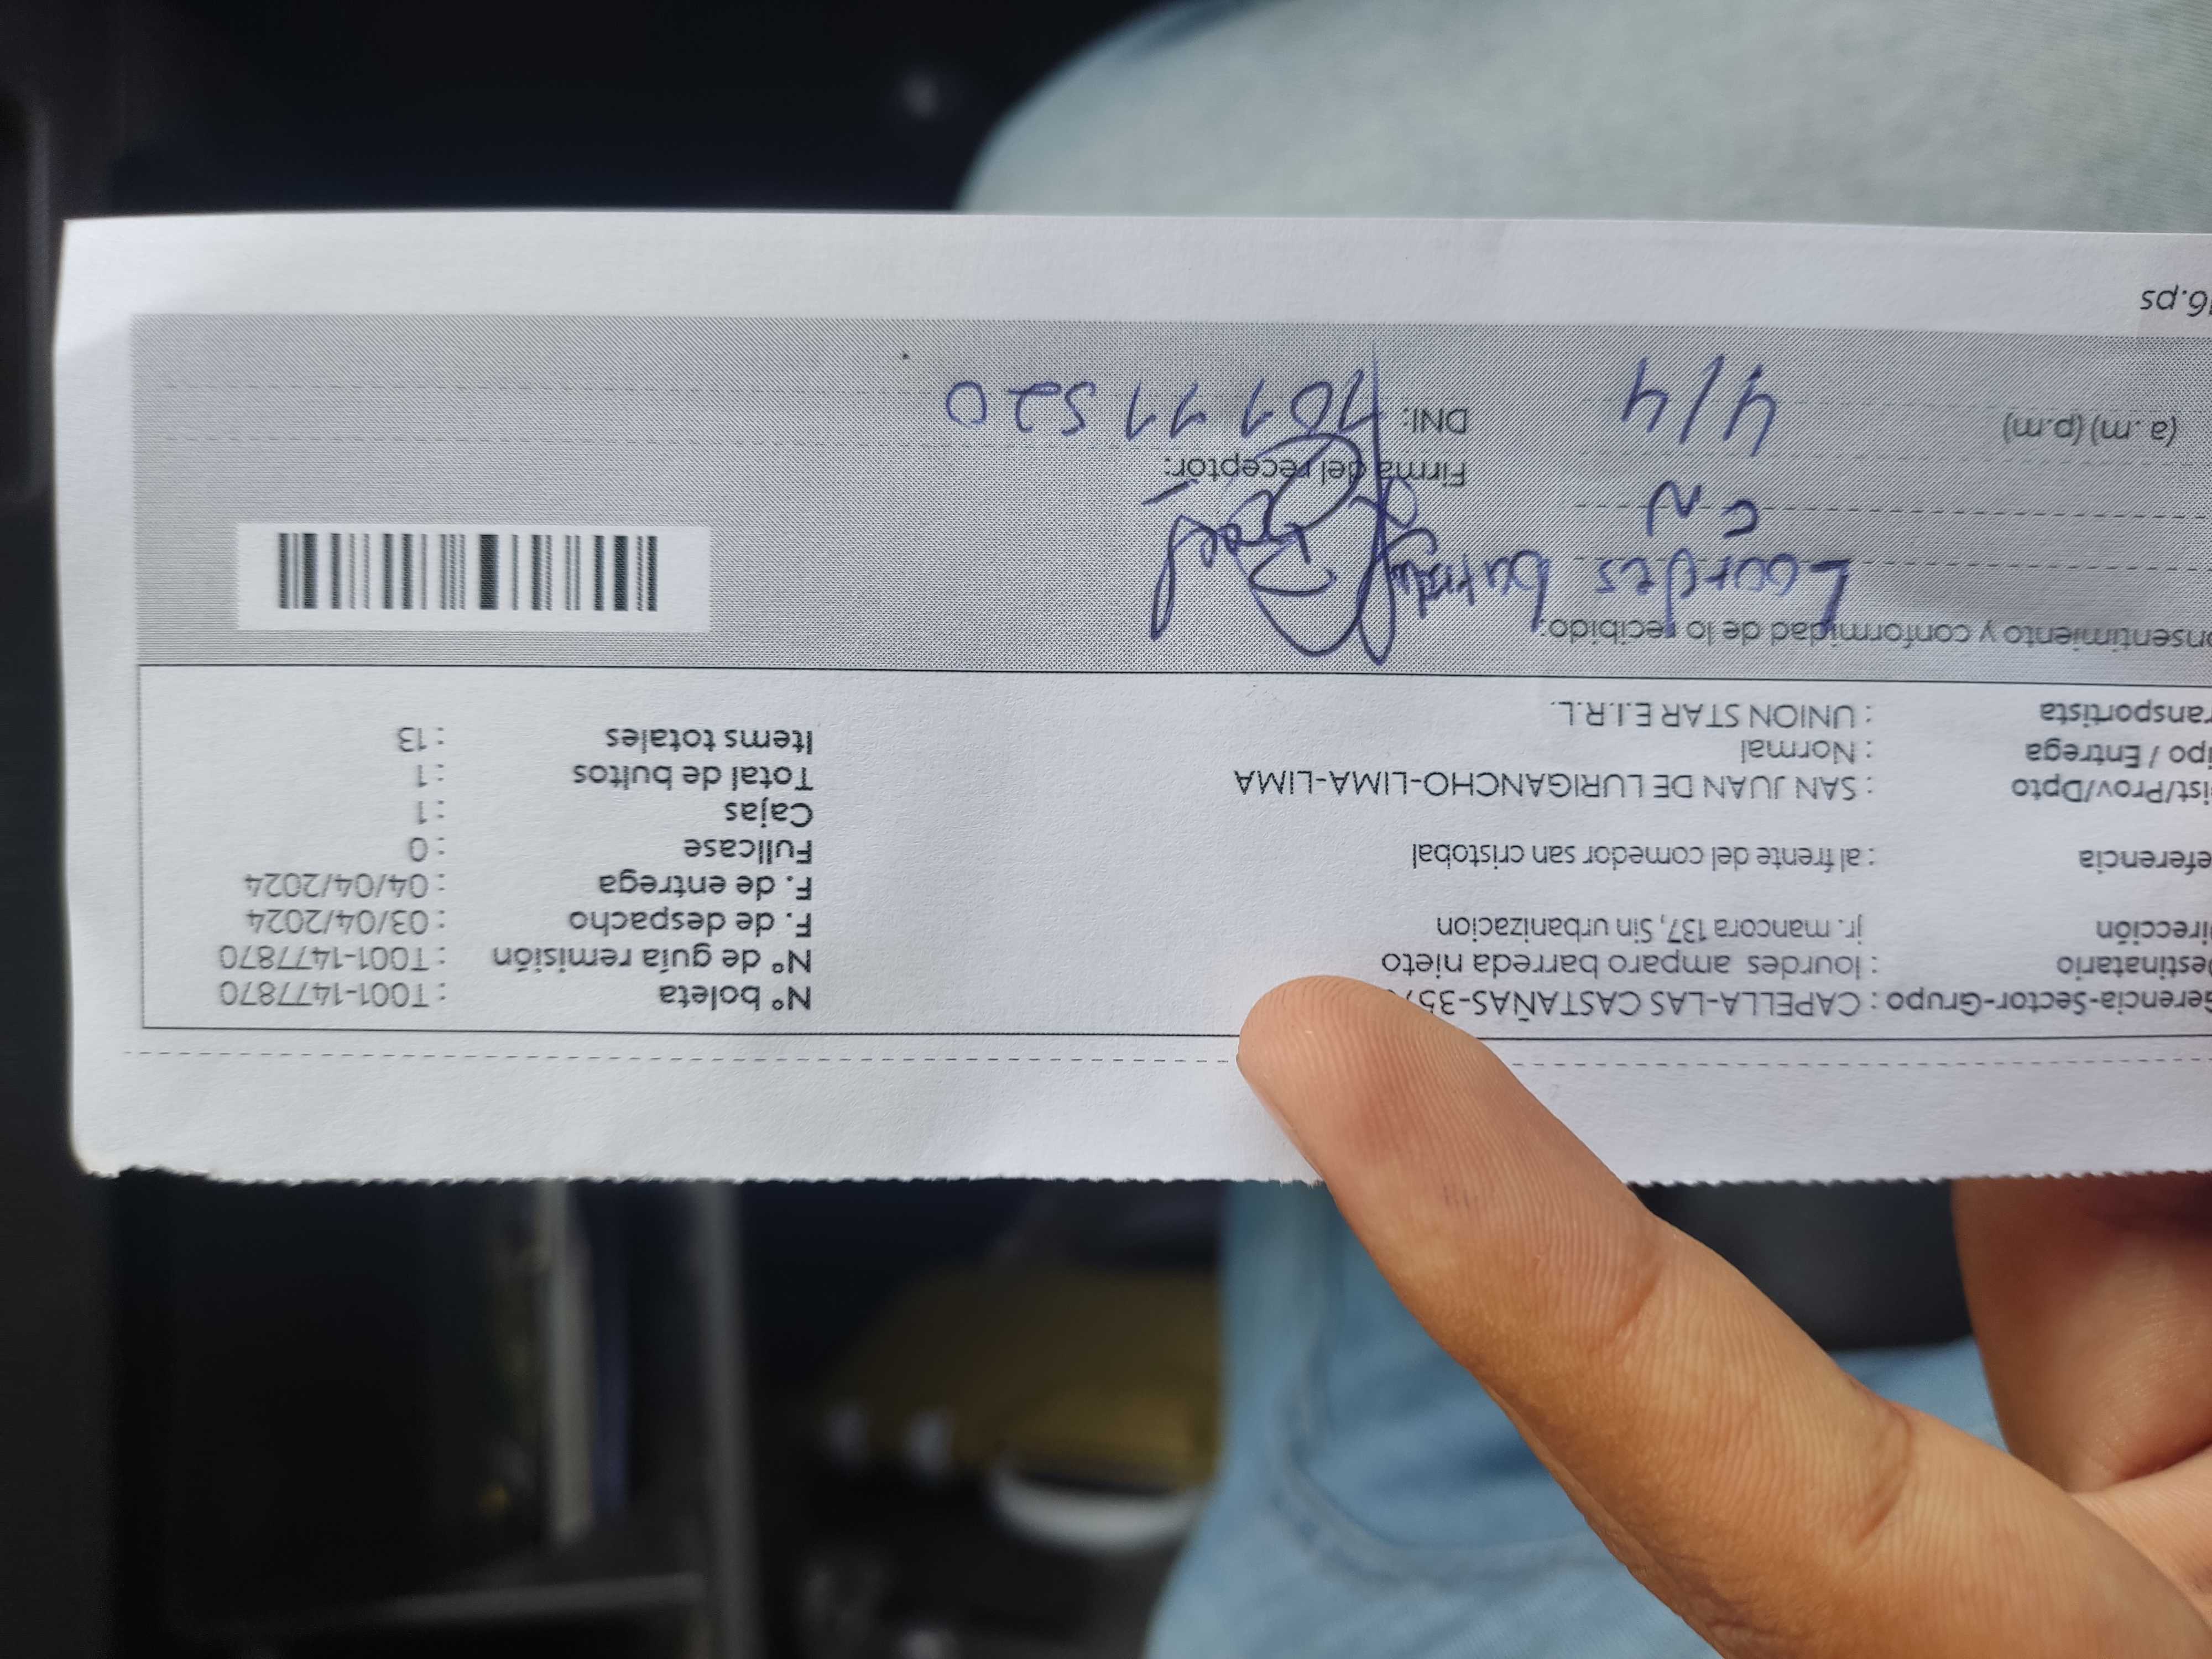 Gerencia-Sector-Grupo : CAPELLA-LAS CASTAÑAS-357
Nº boleta : T001-1477870
estinatario : lourdes amparo barreda nieto
Nº de guía remisión : T001-1477870
irección jr. mancora 137, Sin urbanizacion
F. de despacho : 03/04/2024
F. de entrega : 04/04/2024
eferencia : al frente del comedor san cristobal
Fullcase : 0
Cajas : 1
ist/Prov/Dpto : SAN JUAN DE LURIGANCHO-LIMA-LIMA
Total de bultos : 1
ipo / Entrega : Normal
Items totales : 13
ransportista : UNION STAR E.I.R.L.
onsentimiento y conformidad de lo recibido:
Lourdes
CN
Firma del receptor:
(a.m) (p.m) 4/4 DNI:
6.ps